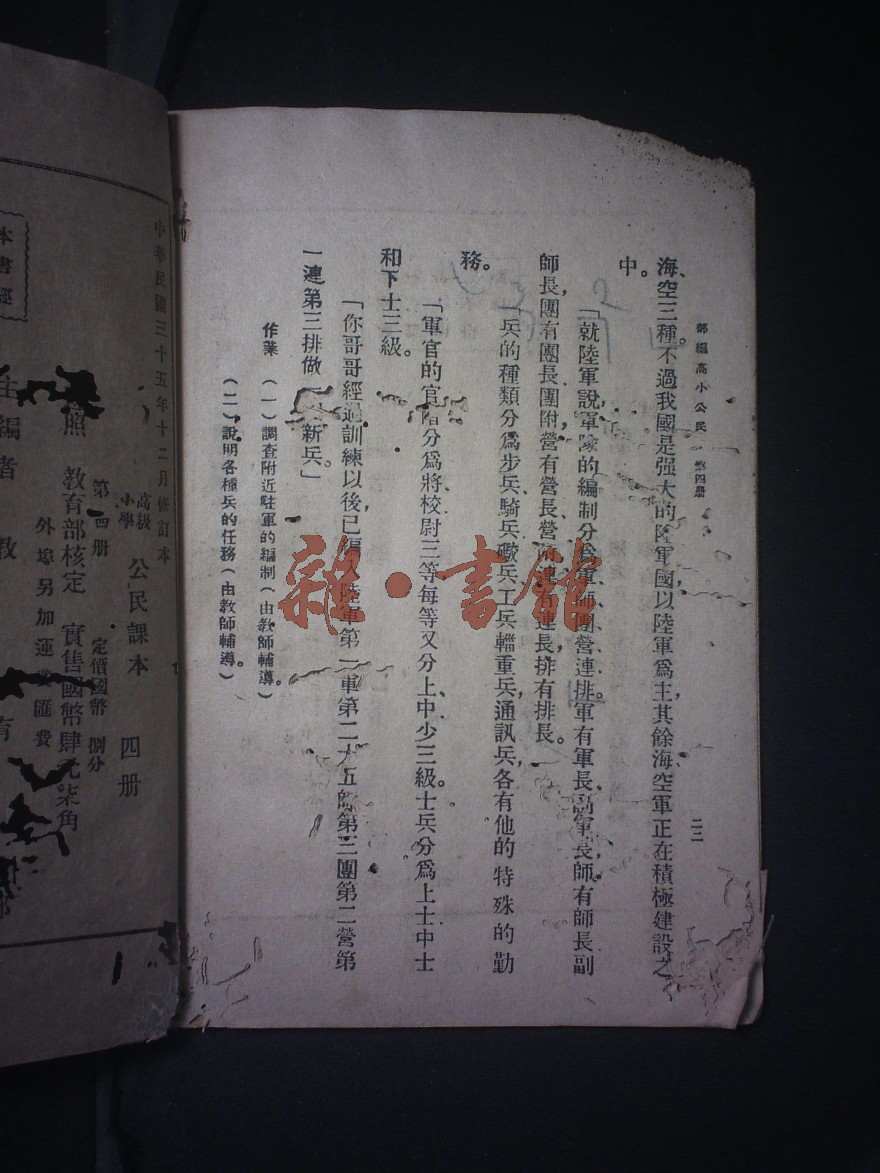 部編高小公民　第四册
二二
海、空三種。不過我國是强大的陸軍國，以陸軍爲主，其餘海、空軍正在積極建設之
中。
「就陸軍說，軍隊的編制分爲軍、師、團、營、連、排。軍有軍長、副軍長，師有師長、副
師長，團有團長、團附，營有營長、營附，連有連長，排有排長。
「兵的種類分爲步兵、騎兵、礮兵、工兵、輜重兵、通訊兵，各有他的特殊的勤
務。
「軍官的官階分爲將、校、尉三等，每等又分上、中、少三級。士兵分爲上士、中士
和下士三級。
「你哥哥經過訓練以後，已編入陸軍第二軍第二十五師第三團第二營第
一連第三排做新兵。」
作業　（一）調查附近駐軍的編制（由教師輔導）。
（二）說明各種兵的任務（由教師輔導）。
中華民國三十五年十二月修訂本
高級小學　公民課本　四册
第四册　定價國幣　捌分
外埠另加運費匯費
照　教育部核定　實售國幣肆元柒角
主編者　教
有
部
本書經
雜·書館